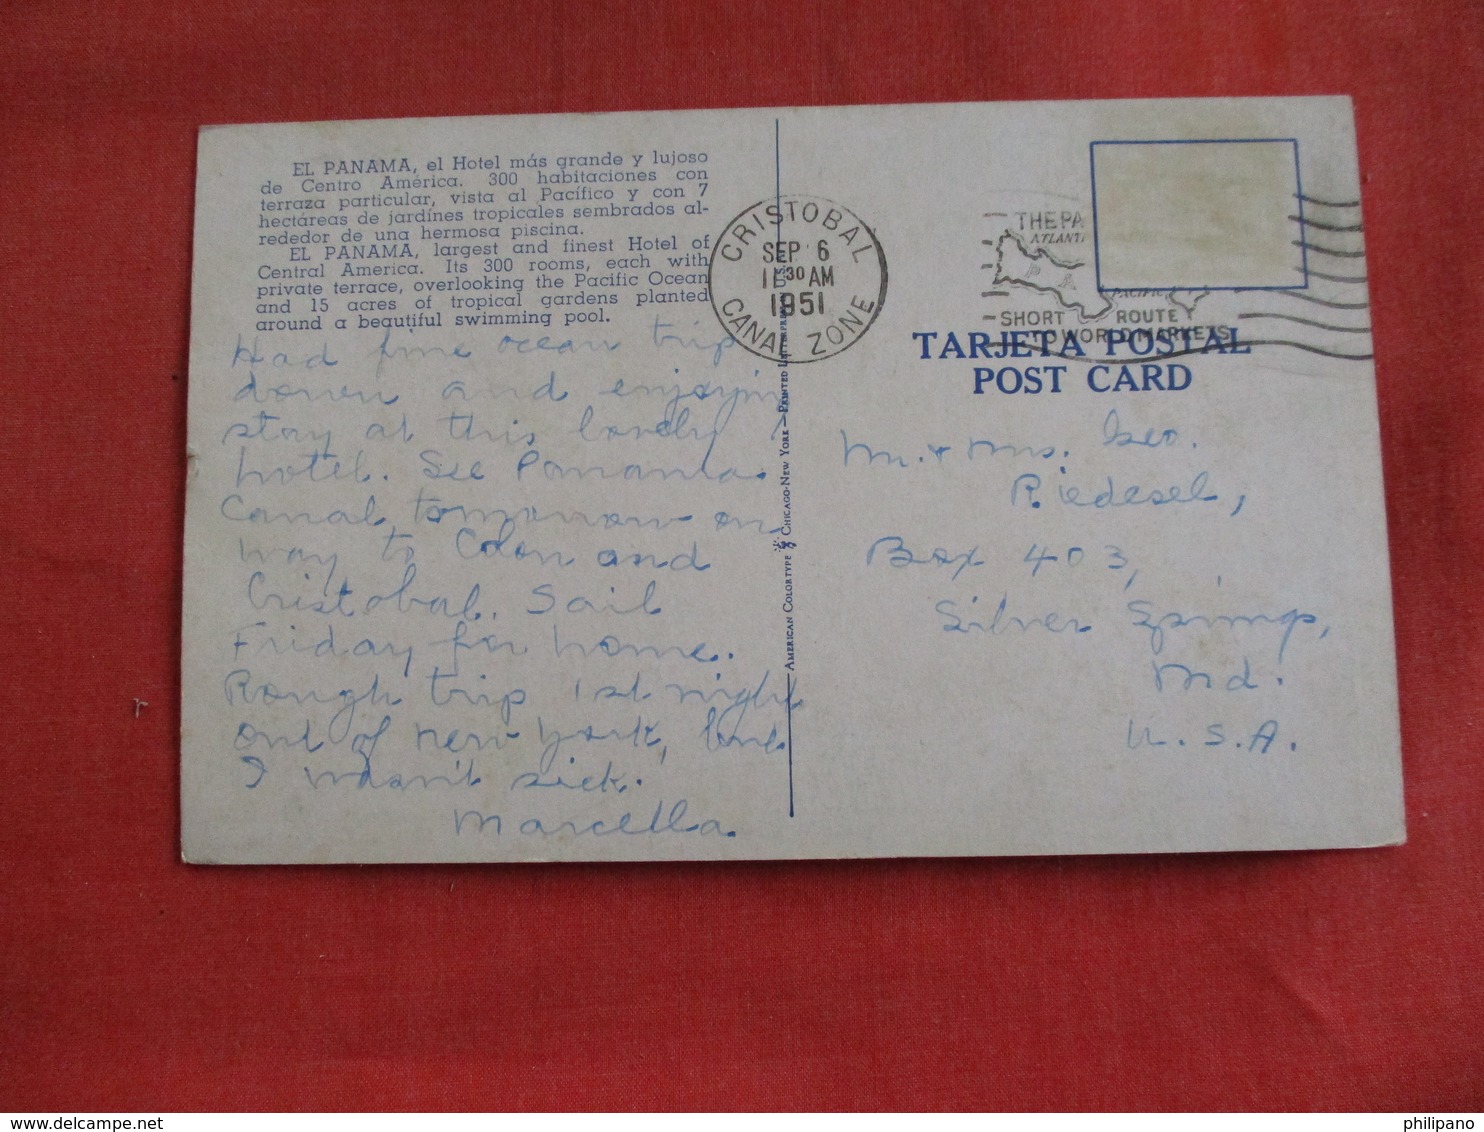 EL PANAMA, el Hotel más grande y lujoso
de Centro América. 300 habitaciones con
terraza particular, vista al Pacífico y con 7
hectáreas de jardines tropicales sembrados al-
rededor de una hermosa piscina.
EL PANAMA, largest and finest Hotel of
Central America. Its 300 rooms, each with
private terrace, overlooking the Pacific Ocean
and 15 acres of tropical gardens planted
around a beautiful swimming pool.
Had fine ocean trip
down and enjoying
stay at this lovely
hotel. See Panama
Canal tomorrow on
way to Colon and
Cristobal. Sail
Friday for home.
Rough trip 1st night
out of New York, but
I wasn't sick.
Marcella
AMERICAN COLORTYPE CHICAGO-NEW YORK—PRINTED LETTERPRESS U.S.A.
CRISTOBAL
SEP 6
11 30 AM
1951
CANAL ZONE
THE PA
ATLANTI
P
A
PACIFIC
SHORT ROUTE
TO WORLD MARKETS
TARJETA POSTAL
POST CARD
Mr. & Mrs. Geo.
Riedesel,
Box 403,
Silver Springs,
Md.
U.S.A.
philipano